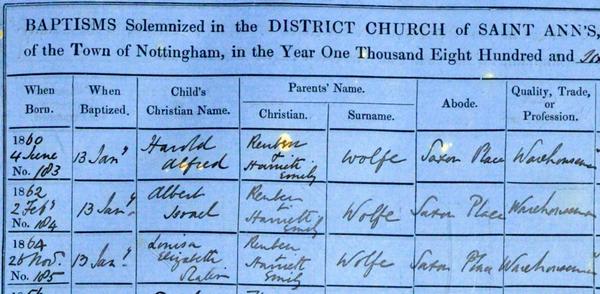 BAPTISMS Solemnized in the DISTRICT CHURCH of SAINT ANN'S,
of the Town of Nottingham, in the Year One Thousand Eight Hundred and
When Born.
When Baptized.
Child's Christian Name.
Parents' Name.
Christian.
Surname.
Abode.
Quality, Trade, or Profession.
1860
4 June
No. 183
13 Jany
Harold
Alfred
Reuben
+
Harriett
Emily
Wolfe
Saxon Place
Warehouseman
1862
2 Feby
No. 184
13 Jany
Albert
Israel
Reuben
Harriett
Emily
Wolfe
Saxon Place
Warehouseman
1864
26 Novr
No. 185
13 Jany
Louisa
Elizabeth
Reuben
+
Harriett
Emily
Wolfe
Saxon Place
Warehouseman